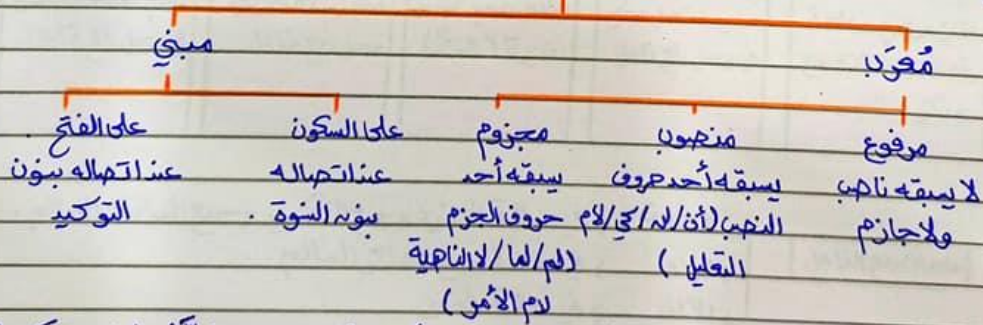 مُعرَب
مبني
مرفوع
لا يسبقه ناصب
ولا جازم
منصوب
يسبقه أحد حروف
النصب (أن/لن/كي/لام
التعليل)
مجزوم
يسبقه أحد
حروف الجزم
(لم/لما/لا الناهية
لام الأمر)
على السكون
عند اتصاله
بنون النسوة.
على الفتح.
عند اتصاله بنون
التوكيد